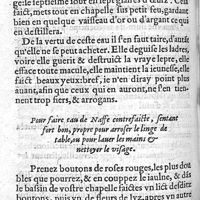 ge: le septiesme iour en sept grains d'Ouz. Cest
faict, mets tout en chapelle sus petit feu, gardant
bien en quelque vaisseau d'or ou d'argent ce qui
en destillera.
De la vertu de ceste eau il s'en faut taire, d'autãt
qu'elle ne se peut acheter. Elle deguise les ladres,
voire elle guerit & destruict la vraye lepre, elle
efface toute macule, elle maintient la ieunesse, elle
faict beaux yeux: bref, ie n'en diray point plus
auant, afin que ceux qui en auront, ne s'en tiennent
trop fiers, & arrogans.
Pour faire eau de Naffe contrefaicte, sentant
fort bon, propre pour arroser le linge de
table, ou pour lauer les mains &
nettoyer le visage.
Prenez boutons de roses rouges, les plus
bles pourrez, & en couppez le iaulne, & dés
le bassin de vostre chapelle faictes vn lict desdicts
boutons, puis vn de fleurs de lyz, apres vn autre